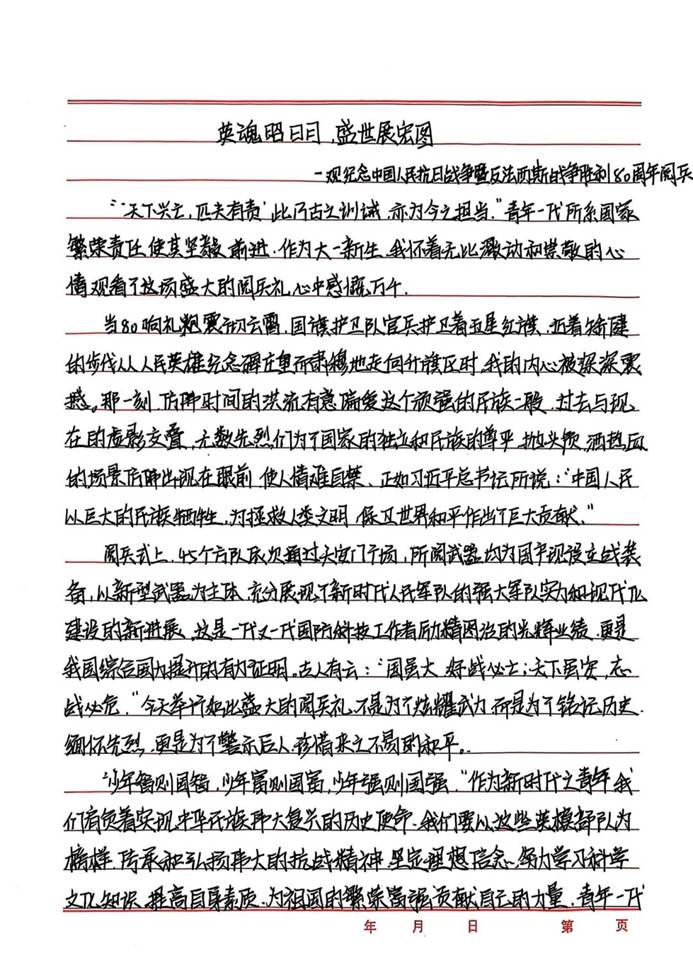 英魂昭日月,盛世展宏图
—观纪念中国人民抗日战争暨反法西斯战争胜利80周年阅兵
“‘天下兴亡,匹夫有责’此乃古之训诫,亦为今之担当。”青年一代所系国家
繁荣责任使其坚毅前进。作为大一新生,我怀着无比激动和崇敬的心
情观看了这场盛大的阅兵礼,心中感慨万千。
当80响礼炮震彻云霄,国旗护卫队官兵护卫着五星红旗,迈着矫健
的步伐从人民英雄纪念碑庄重而肃穆地走向升旗区时,我的内心被深深震
撼。那一刻,仿佛时间的洪流有意偏爱这个顽强的民族一般,过去与现
在的虚影交叠,无数先烈们为了国家的独立和民族的尊严,抛头颅,洒热血
的场景仿佛出现在眼前,使人情难自禁、正如习近平总书记所说:“中国人民
以巨大的民族牺牲,为拯救人类文明,保卫世界和平作出了巨大贡献。”
阅兵式上,45个方队依次通过天安门广场,所阅武器均为国产现役主战装
备,以新型武器为主体,充分展现了新时代人民军队的强大军队实力和现代化
建设的新进展、这是一代又一代国防科技工作者励精图治的光辉业绩,更是
我国综合国力提升的有力证明。古人有云:“国虽大,好战必亡;天下虽安,忘
战必危。”今天举行如此盛大的阅兵礼,不是为了炫耀武力,而是为了铭记历史,
缅怀先烈,更是为了警示后人,珍惜来之不易的和平。
“少年智则国智,少年富则国富,少年强则国强。”作为新时代之青年,我
们肩负着实现中华民族伟大复兴的历史使命、我们要以这些英模部队为
榜样,传承和弘扬伟大的抗战精神,坚定理想信念,努力学习科学
文化知识,提高自身素质,为祖国的繁荣富强贡献自己的力量,青年一代
年 月 日 第 页